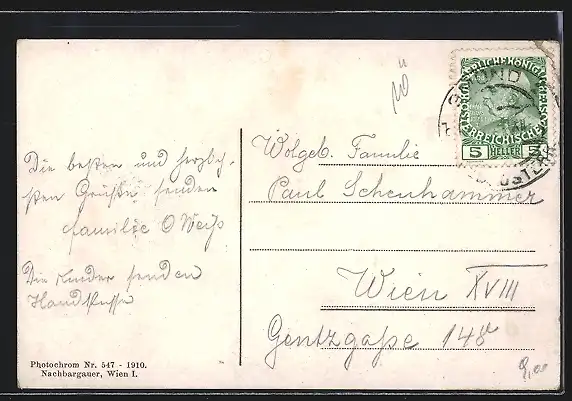 Die besten und herzlich-
sten Grüße senden
familie O Weiß
Die Kinder senden
Handküsse
Photochrom Nr. 547 - 1910.
Nachbargauer, Wien I.
Wolgeb. Familie
Paul Schenhammer
Wien XVIII
Gentzgaße 148
KAISERLICHE KÖNIGL
ÖSTERREICHISCHE
5 HELLER 5
GMÜND